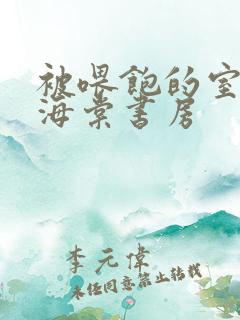 被喂饱的室
海棠书房
李元伟
未经同意禁止转载